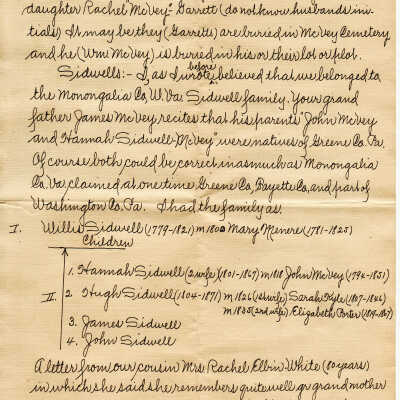 daughter Rachel "McVey" Garrett (do not know husbands ini-
tials) It may be they (Garretts) are buried in McVey Cemetery
and he (Wm McVey) is buried in his or their lot or plot.
Sidwells:- I, as I wrote before, believed that we belonged to
the Monongalia Co, W. Va. Sidwell family. Your grand
father James McVey recites that his parents "John McVey
and Hannah Sidwell McVey" were natives of Greene Co. Pa.
Of course both could be correct inasmuch as Monongalia
Co. Va, claimed at one time Greene Co, Fayette Co, and part of
Washington Co. Pa. I had the family as
I. Willis Sidwell (1779-1821) m 1800 Mary (1781-1825)
Children
1. Hannah Sidwell (2 wife) (1801-1867) m 1818 John McVey (1796-1851)
II. 2 Hugh Sidwell (1804-1871) m 1826 (1st wife) Sarah Kyle (1807-)
m 1835 (2nd wife) Elizabeth Porter
3. James Sidwell
4. John Sidwell
A letter from our cousin Mrs Rachel Ellin White (80 years)
in which she said she remembers quite well gr grand mother